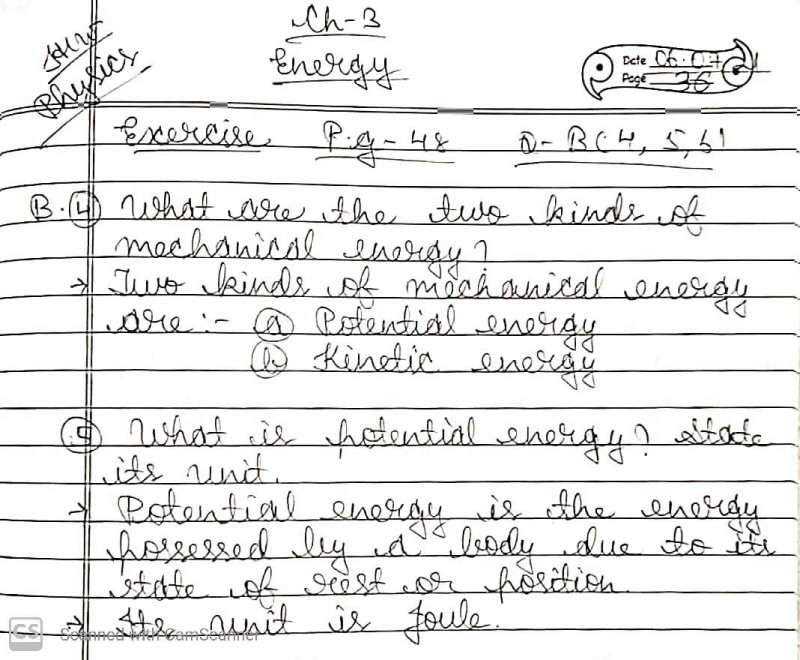 Ch-3
H.W
Physics
Energy
Date 06.07
Page 36
Exercise Pg-48 Q-B(4, 5, 6)
B.(4) What are the two kinds of
mechanical energy?
→ Two kinds of mechanical energy
are :- (a) Potential energy
(b) Kinetic energy
(5) What is potential energy? State
its unit.
→ Potential energy is the energy
possessed by a body due to its
state of rest or position.
→ Its unit is Joule.
CS Scanned with CamScanner